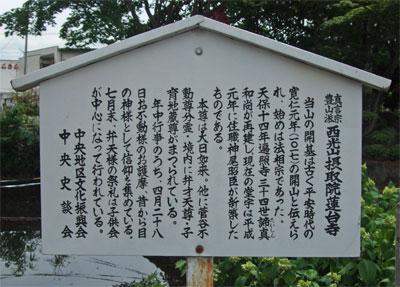 真言宗
豊山派
西光山摂取院蓮台寺
当山の開基は古く平安時代の
寛仁元年(一〇一七)の開山と伝えら
れ、始めは法相宗であった。
天保十四年遍照寺三十四世諦真
和尚が再建し現在の堂宇は平成
元年に住職神尾弱臣が新築した
ものである。
本尊は大日如来。他に菅谷不
動尊分霊・境内に弁才天尊・子
育地蔵尊がまつられている。
年中行事のうち、四月二十八
日お不動様のお護摩、昔から目
の神様として信仰を集めている。
七月末、弁天様の祭礼は子供会
が中心になって行われている。
中央地区文化振興会
中央史談会